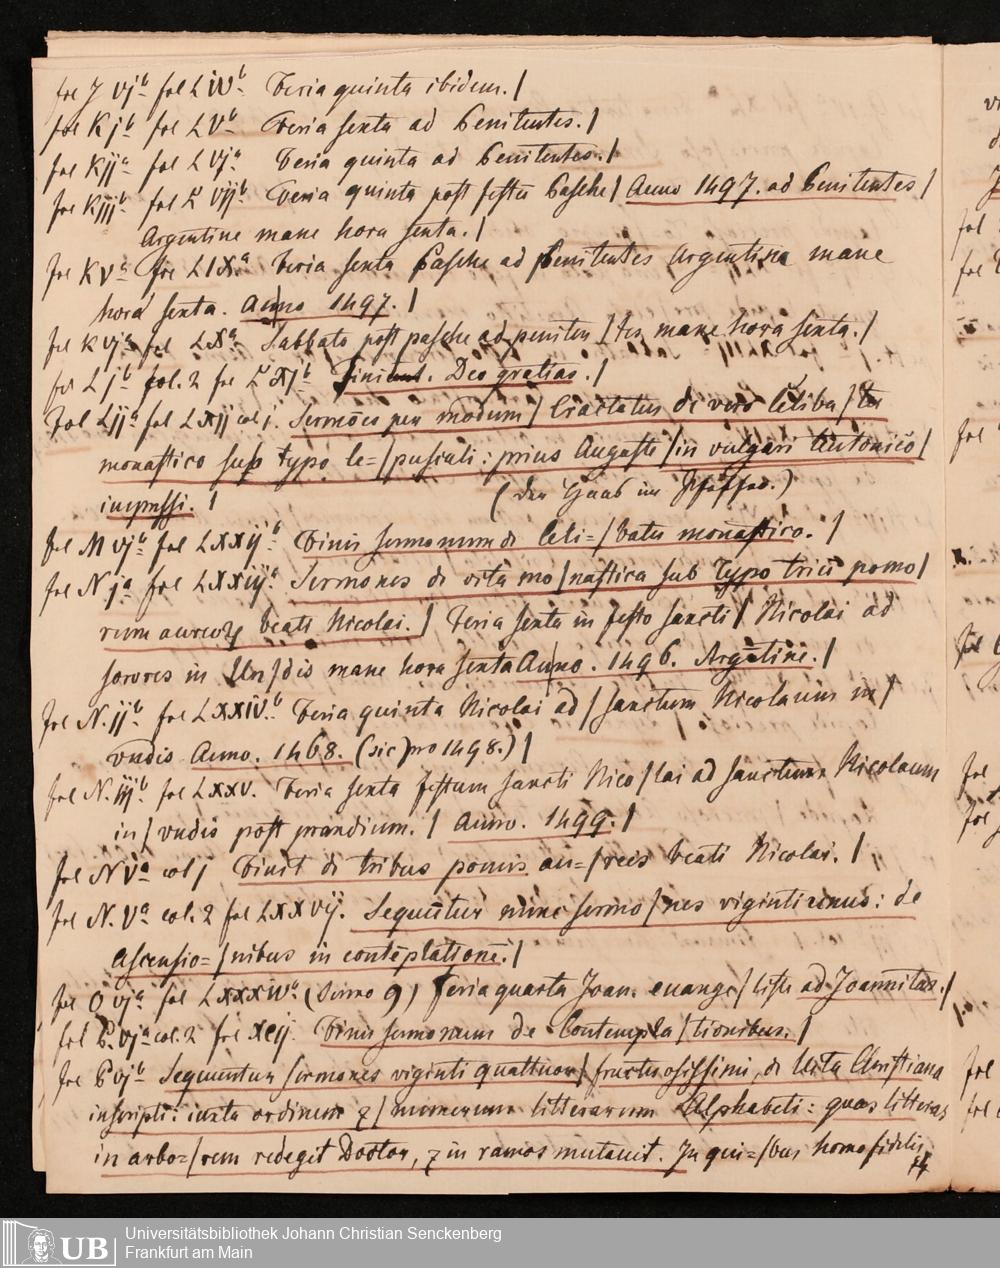 fol J vjᵇ fol LIVᵇ. Feria quinta ibidem. |
fol K jᵇ fol LVᵇ Feria sexta ad Penitentes. |
fol K ijᵃ fol LVjᵃ Feria quinta ad Penitentes. |
fol K iijᵇ fol LVijᵇ Feria quinta post festū Pasche | Anno 1497. ad Penitentes |
Argentine mane hora sexta. |
fol K vᵃ fol LIXᵃ Feria sexta Pasche ad penitentes Argentina mane
hora sexta. Anno 1497. |
fol K vjᵃ fol LXᵃ Sabbato post pasche ad peniten | tes mane hora sexta. |
fol L jᵇ col. 2 fol LXjᵇ Finiunt. Deo gratias. |
Fol L ijᵃ fol LXij col j. Sermoēs per modum | Tractatus de vero Celiba | tu
monastico sub typo le= | pusculi: prius Auguste | in vulgari Antonio |
impressi. | (der Haas im Pfeffer.)
fol M vjᵇ fol LXXijᵇ Finis sermonum de Celi= | batu monastico. |
fol N jᵃ fol LXXiijᵃ Sermones de vita mo | nastica sub typo triū pomo |
rum aureoꝝ beati Nicolai. | Feria sexta in festo sancti | Nicolai ad
sorores in Un | dis mane hora sexta Anno. 1496. Argētine. |
fol N. ijᵇ fol LXXIVᵇ Feria quinta Nicolai ad | sanctum Nicolaum in |
vndis Anno. 1468. (sic) pro 1498.) |
fol N. iijᵇ. fol LXXV. Feria sexta festum sancti Nico | lai ad sanctum Nicolaum
in | vndis post prandium. | Anno. 1499. |
fol N vᵃ col j Finit de tribus pomis au= | reis beati Nicolai. |
fol N. vᵃ col. 2 fol LXXVij. Sequūtur nunc sermo | nes viginti unus: de
Ascensio= | nibus in contēplationē. |
fol O vjᵃ fol LXXXIVᵃ (Sermo 9) Feria quarta Joan. euange | liste ad Joannitas. |
fol P. vjᵃ col. 2 fol XCij Finis sermonum de Contempla | tionibus. |
fol P vjᵇ Sequuntur sermones viginti quattuor | fructuosissimi, de Vita Christiana
inscripti: iuxta ordinem ⁊ | numerum litterarum Alphabeti: quas litteras
in arbo= | rem redegit Doctor, ⁊ in ramos mutauit. In qui= | bus homo fidelis